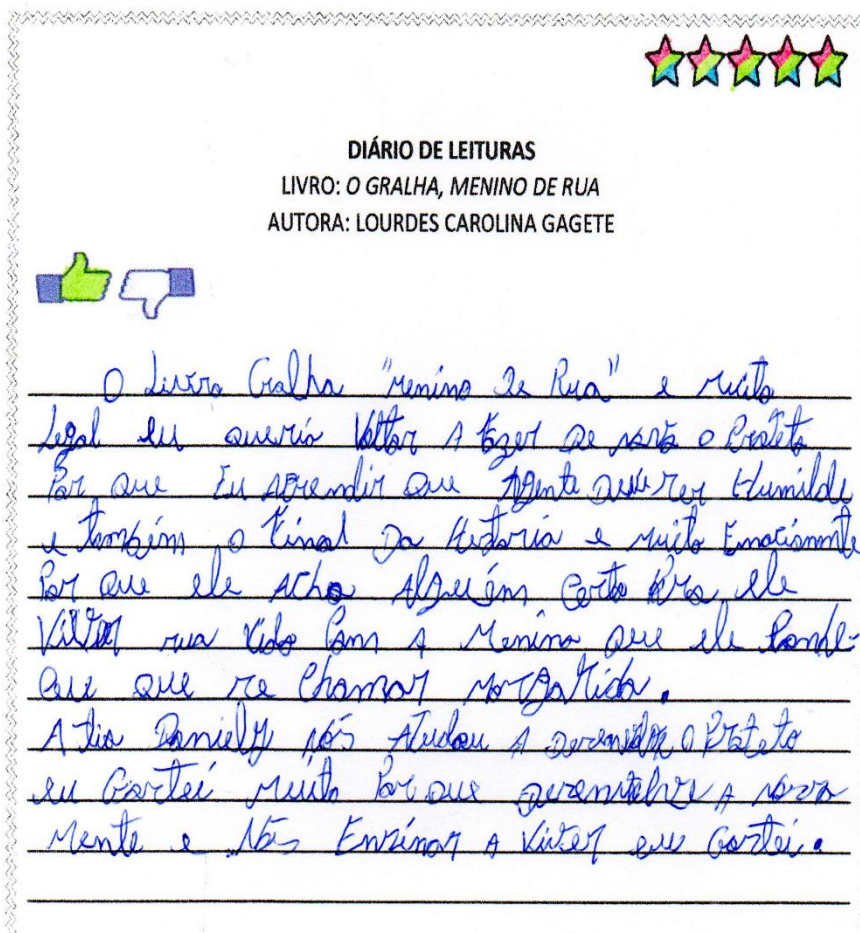 DIÁRIO DE LEITURAS
LIVRO: O GRALHA, MENINO DE RUA
AUTORA: LOURDES CAROLINA GAGETE
O Livro Gralha "menino De Rua" e muito
Legal eu queria Voltar A fazer de novo o Projeto
Por que Eu Aprendir que Agente deve ser Humilde
e também o Final Da Historia e muito Emocionante
Por que ele Acha Alguém Certo Pra ele
Viver sua Vida Com A Menina que ele
que que se Chamar Margarida.
A tia Daniely nós Ajudou A desenvolver o Projeto
eu Gostei Muito Por que desenvolve A nossa
Mente e Nós Ensinar A Viver eu Gostei.